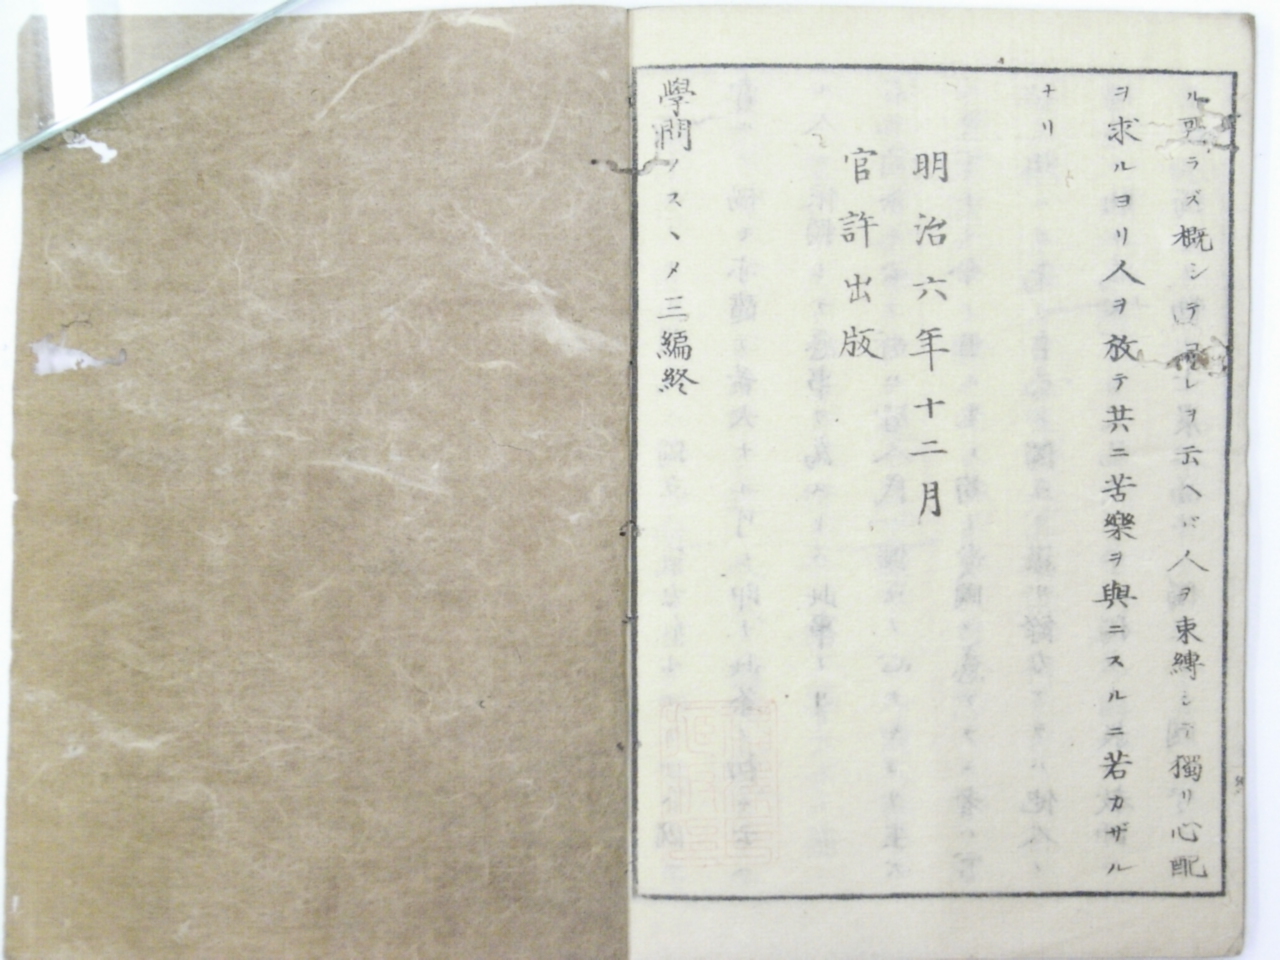 ル可ラズ概シテレヲ云ヘバ人ヲ束縛シテ獨リ心配
ヲ求ルヨリ人ヲ放テ共ニ苦樂ヲ與ニスルニ若カザル
ナリ
明治六年十二月
官許出版
學問ノスヽメ三編終